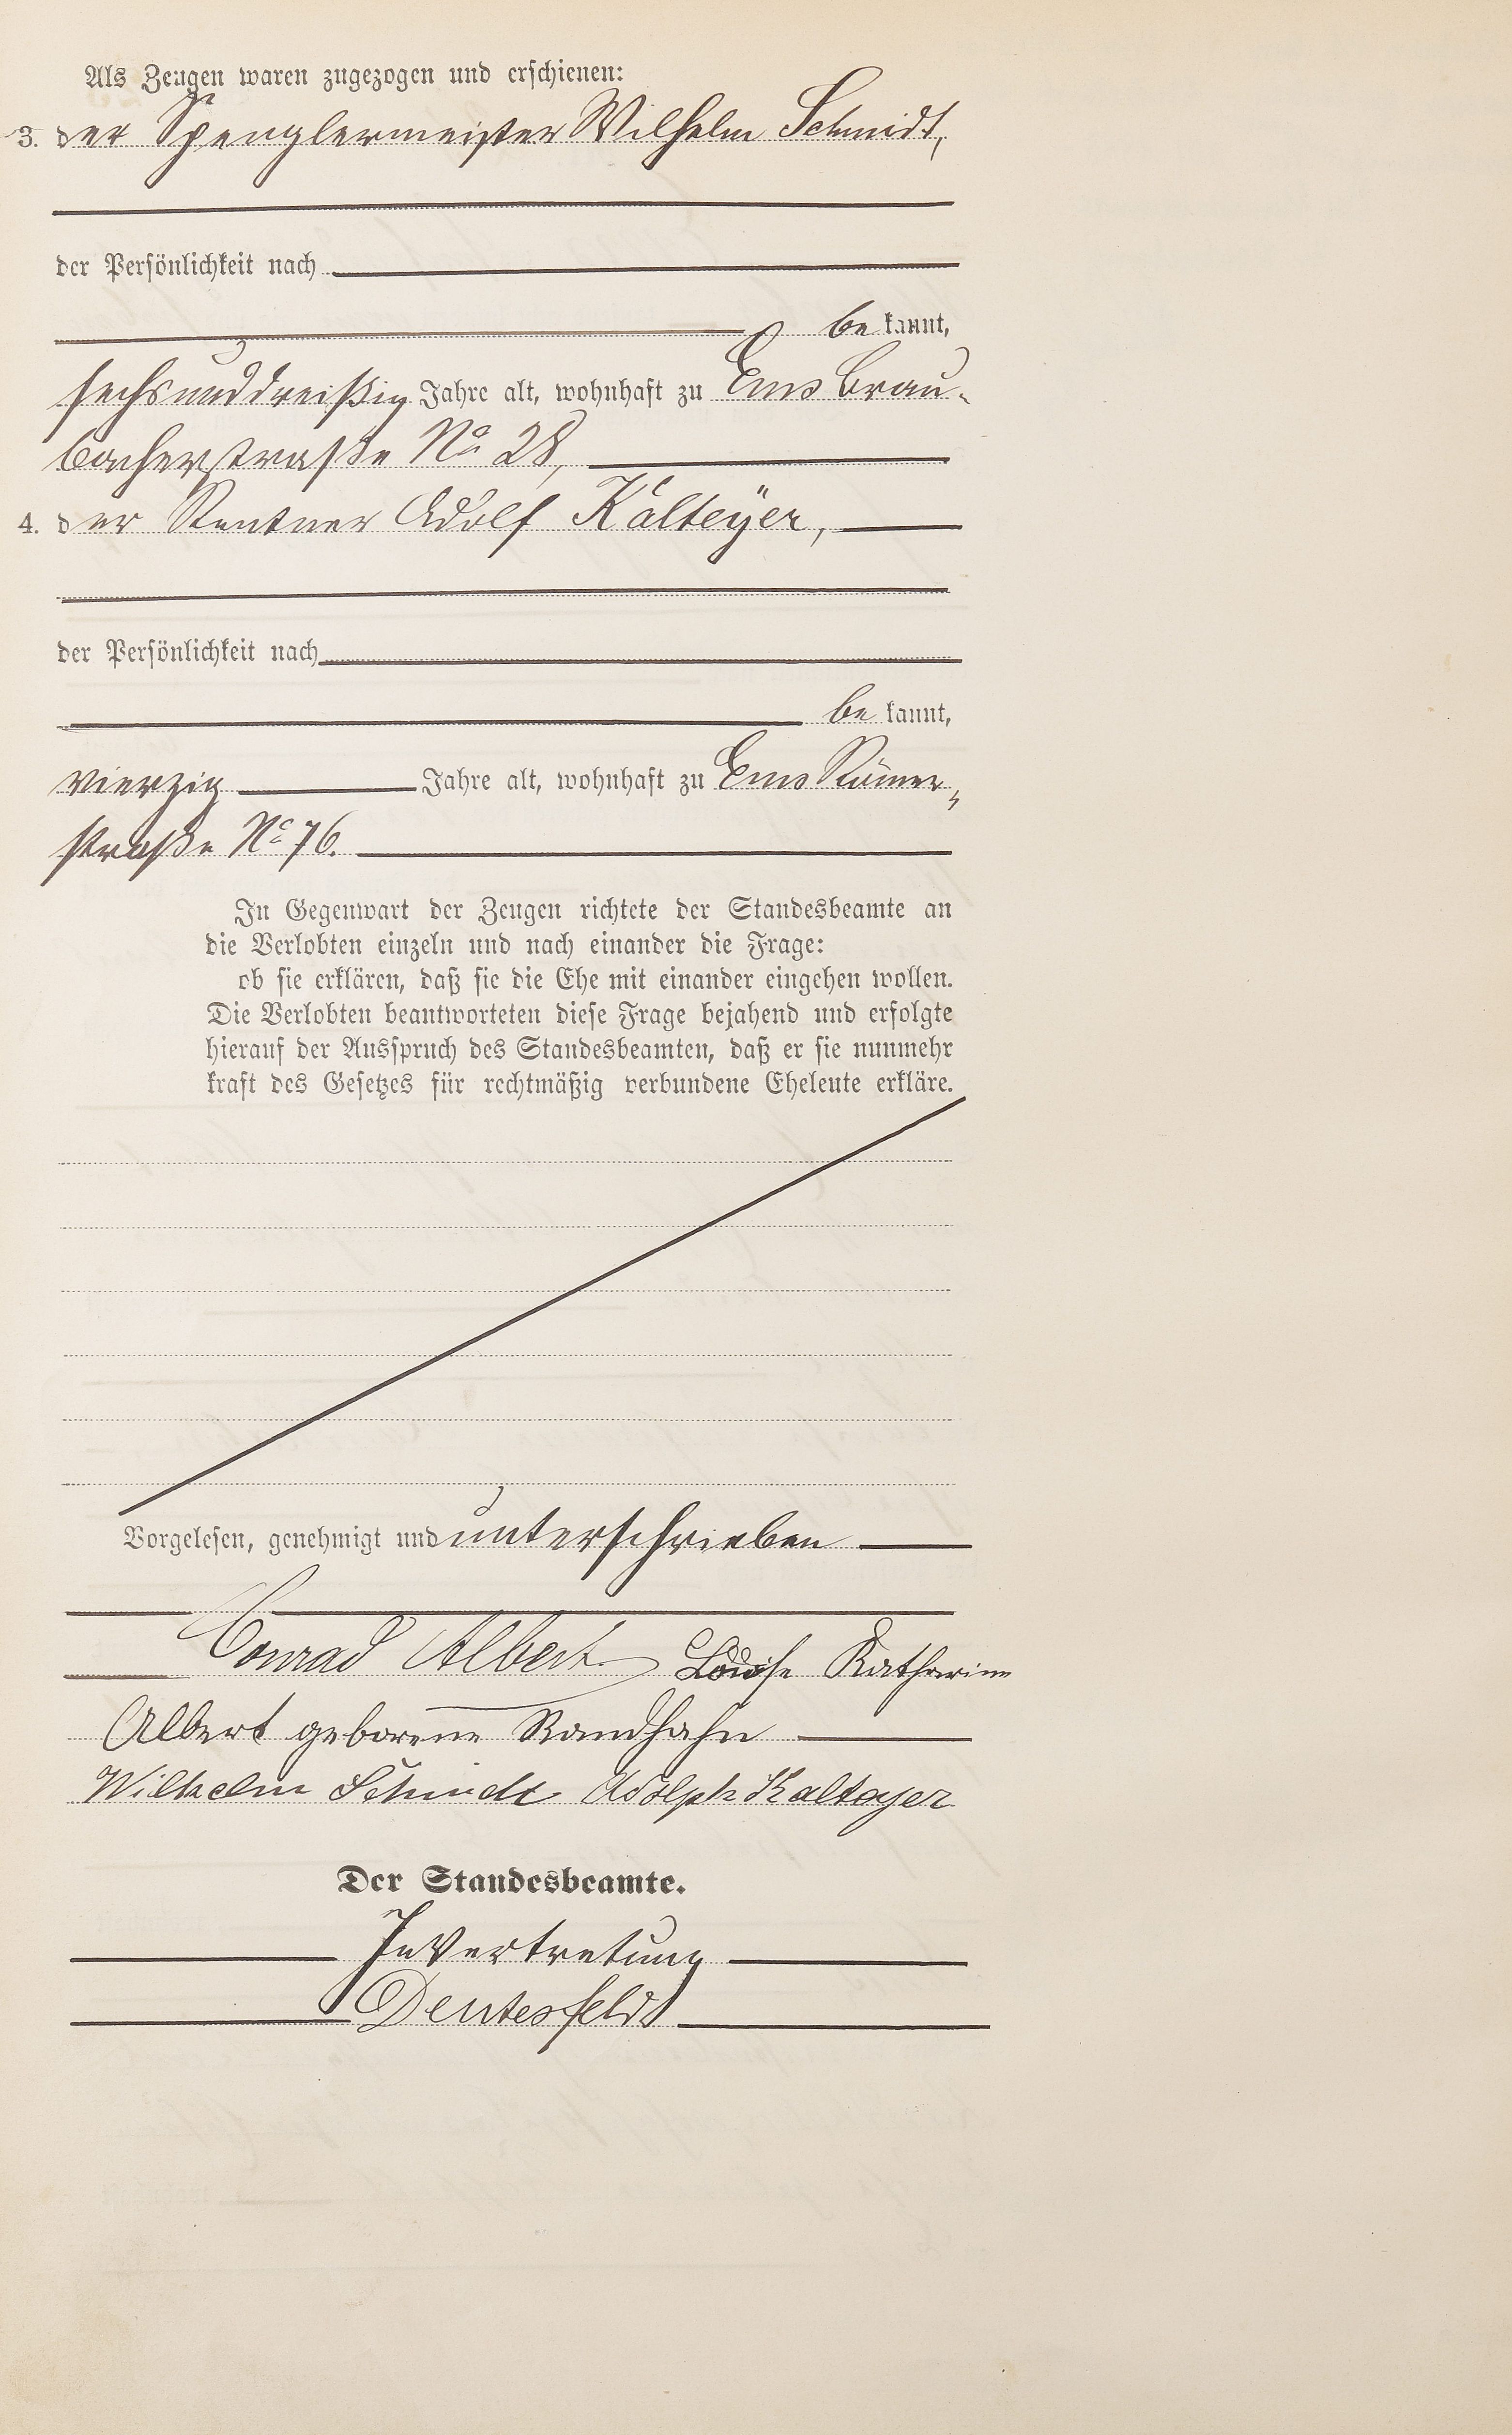 Als Zeugen waren zugezogen und erschienen:
3. der Spenglermeister Wilhelm Schmidt,
der Persönlichkeit nach
be kannt,
sechsunddreißig Jahre alt, wohnhaft zu Ems Brau-
bacherstraße No 28,
4. der Rentner Adolf Kalteyer,
der Persönlichkeit nach
be kannt,
vierzig Jahre alt, wohnhaft zu Ems Römer-
straße No 76.
In Gegenwart der Zeugen richtete der Standesbeamte an
die Verlobten einzeln und nach einander die Frage:
ob sie erklären, daß sie die Ehe mit einander eingehen wollen.
Die Verlobten beantworteten diese Frage bejahend und erfolgte
hierauf der Ausspruch des Standesbeamten, daß er sie nunmehr
kraft des Gesetzes für rechtmäßig verbundene Eheleute erkläre.
Vorgelesen, genehmigt und unterschrieben
Conrad Albert Louise Katharine
Albert geborene Randhahn
Wilhelm Schmidt Adolph Kalteyer
Der Standesbeamte.
In Vertretung